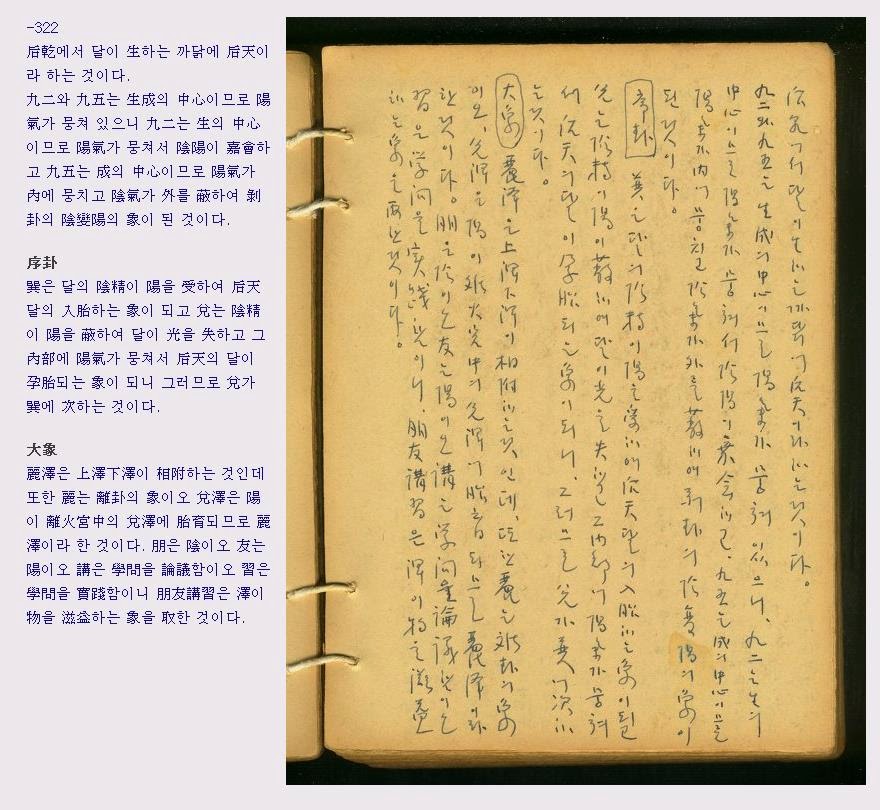 -322
后乾에서 달이 生하는 까닭에 后天이
라 하는 것이다.
九二와 九五는 生成의 中心이므로 陽
氣가 뭉쳐 있으니 九二는 生의 中心
이므로 陽氣가 뭉쳐서 陰陽이 嘉會하
고 九五는 成의 中心이므로 陽氣가
內에 뭉치고 陰氣가 外를 蔽하여 剝
卦의 陰變陽의 象이 된 것이다.
序卦
巽은 달의 陰精이 陽을 受하여 后天
달의 入胎하는 象이 되고 兌는 陰精
이 陽을 蔽하여 달이 光을 失하고 그
內部에 陽氣가 뭉쳐서 后天의 달이
孕胎되는 象이 되니 그러므로 兌가
巽에 次하는 것이다.
大象
麗澤은 上澤下澤이 相附하는 것인데
또한 麗는 離卦의 象이오 兌澤은 陽
이 離火宮中의 兌澤에 胎育되므로 麗
澤이라 한 것이다. 朋은 陰이오 友는
陽이오 講은 學問을 論議함이오 習은
學問을 實踐함이니 朋友講習은 澤이
物을 滋益하는 象을 取한 것이다.
后乾에서 달이 生하는 까닭에 后天이라 하는 것이다.
九二와 九五는 生成의 中心이므로 陽氣가 뭉쳐 있으니, 九二는 生의
中心이므로 陽氣가 뭉쳐서 陰陽이 嘉會하고, 九五는 成의 中心이므로
陽氣가 內에 뭉치고 陰氣가 外를 蔽하여 剝卦의 陰變陽의 象이
된 것이다.
序卦 巽은 달의 陰精이 陽을 受하여 后天달의 入胎하는 象이 되고
兌는 陰精이 陽을 蔽하여 달이 光을 失하고 그 內部에 陽氣가 뭉쳐
서 后天의 달이 孕胎되는 象이 되니, 그러므로 兌가 巽에 次하
는 것이다.
大象 麗澤은 上澤下澤이 相附하는 것인데, 또한 麗는 離卦의 象
이오, 兌澤은 陽이 離火宮中의 兌澤에 胎育되므로 麗澤이라
한 것이다. 朋은 陰이오 友는 陽이오 講은 學問을 論議함이오
習은 學問을 實踐함이니, 朋友講習은 澤이 物을 滋益
하는 象을 取한 것이다.